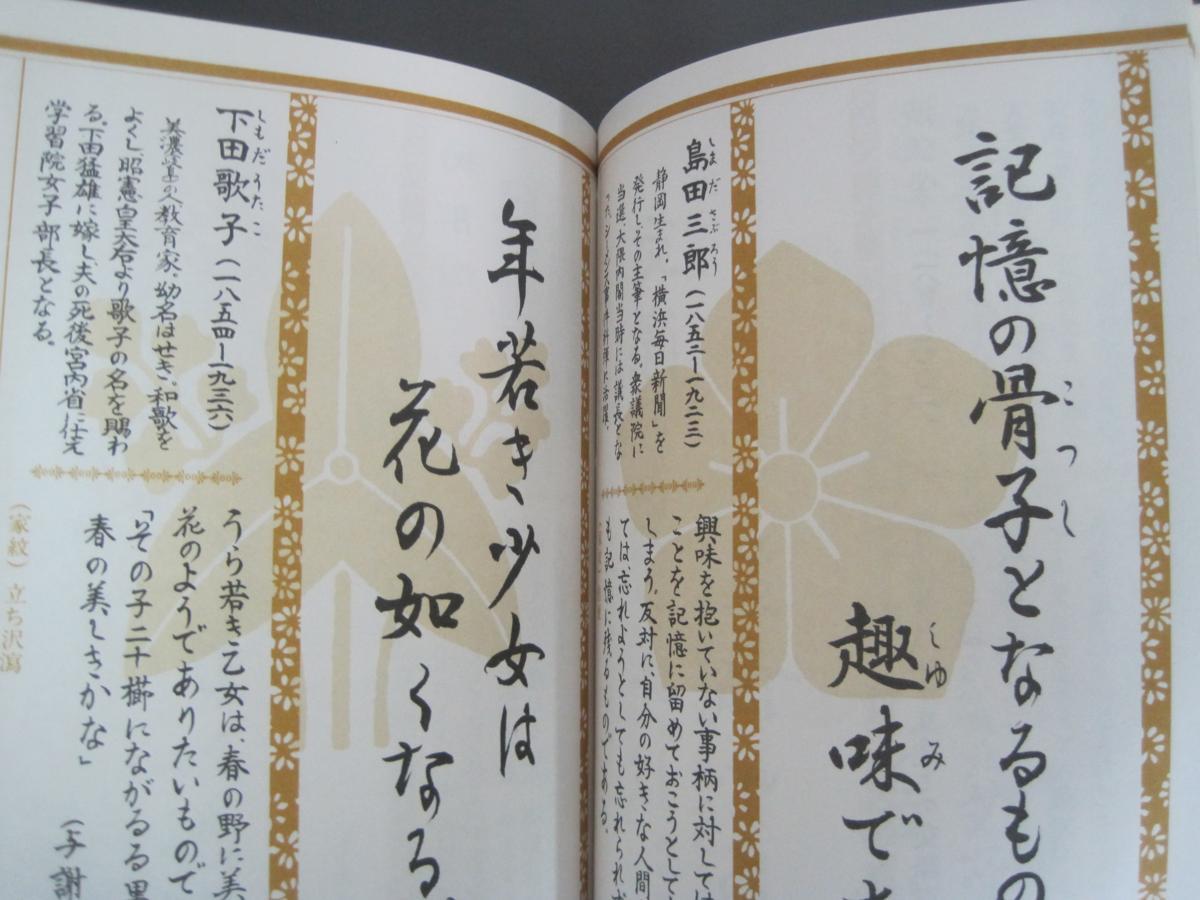 記憶の骨子となるもの
こっし
趣味で
しゅみ
島田三郎(一八五二ー一九二三)
しまださぶろう
静岡生まれ。「横浜毎日新聞」を
発行し、その主筆となる。衆議院に
当選、大隈内閣当時には議長とな
興味を抱いていない事柄に対しては
ことを記憶に留めておこうとして
しまう。反対に、自分の好きな人間
ては、忘れようとしても忘れられず
も記憶に残るものである。
年若き少女は
花の如くなる
下田歌子(一八五四ー一九三六)
しもだうたこ
美濃
の人教育家。幼名はせき。和歌を
よくし、昭憲皇太后より歌子の名を賜わ
る。下田猛雄に嫁し、夫の死後宮内省に仕え
学習院女子部長となる。
うら若き乙女は、春の野に美
花のようでありたいもので
「その子二十櫛にながるる黒
春の美しきかな」
(与謝
(家紋)立ち沢瀉